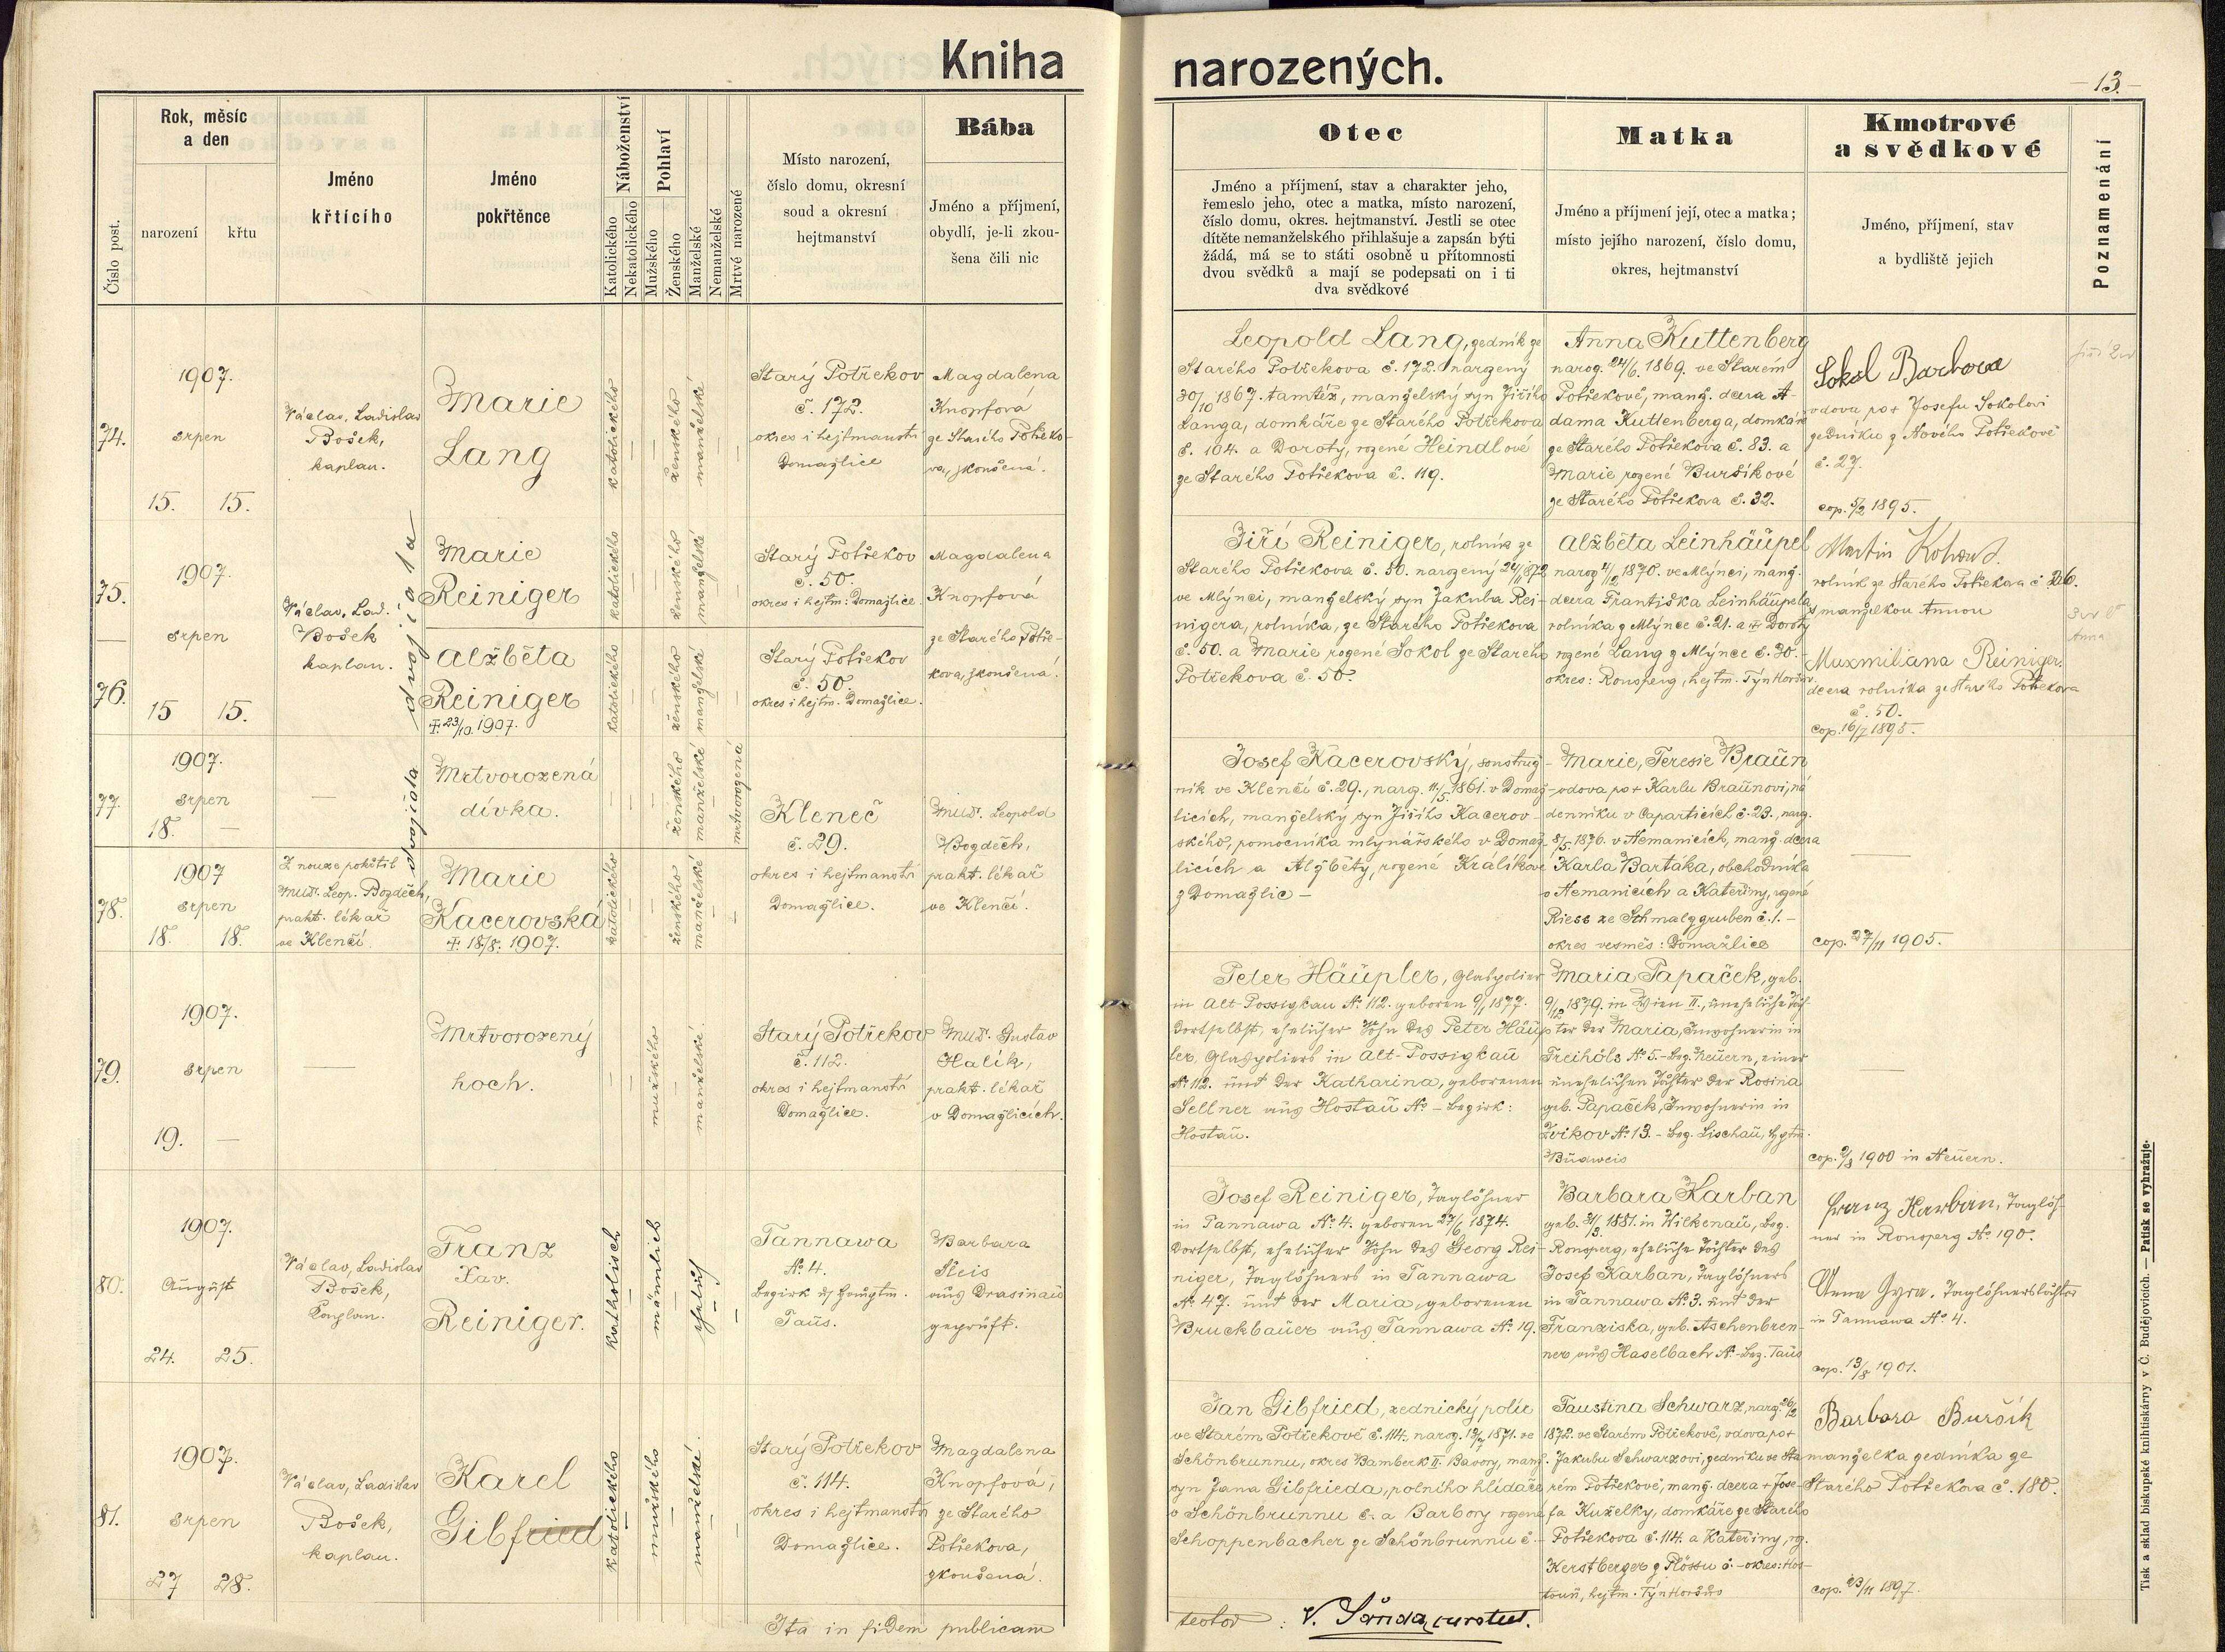 Kniha
narozených.
13.
Číslo post.
Rok, měsíc
a den
narození
křtu
Jméno
křtícího
Jméno
pokřtěnce
Náboženství
Katolického
Nekatolického
Pohlaví
Mužského
Ženského
Manželské
Nemanželské
Mrtvé narozené
Místo narození,
číslo domu, okresní
soud a okresní
hejtmanství
Bába
Jméno a příjmení,
obydlí, je-li zkou-
šena čili nic
Otec
Jméno a příjmení, stav a charakter jeho,
řemeslo jeho, otec a matka, místo narození,
číslo domu, okres. hejtmanství. Jestli se otec
dítěte nemanželského přihlašuje a zapsán býti
žádá, má se to státi osobně u přítomnosti
dvou svědků a mají se podepsati on i ti
dva svědkové
Matka
Jméno a příjmení její, otec a matka;
místo jejího narození, číslo domu,
okres, hejtmanství
Kmotrové
a svědkové
Jméno, příjmení, stav
a bydliště jejich
Poznamenání
74.
1907.
srpen
15. 15.
Václav, Ladislav
Bošek,
kaplan.
Marie
Lang
katolického
ženského
manželské
Starý Potřekov
č. 172.
okres i hejtmanství
Domažlice
Magdalena
Knopfová
ze Starého Potřeko-
va, zkoušená.
Leopold Lang, zedník ze
Starého Potřekova č. 172. narozený
30/10 1867. tamtéž, manželský syn Jiřího
Langa, domkáře ze Starého Potřekova
č. 104. a Doroty, rozené Heindlové
ze Starého Potřekova č. 119.
Anna Kuttenberg
naroz. 24/6. 1869. ve Starém
Potřekově, manž. dcera A-
dama Kuttenberga, domkáře
ze Starého Potřekova č. 83. a
Marie rozené Buršíkové
ze Starého Potřekova č. 32.
Sokol Barbora
vdova po + Josefu Sokolovi
zedníku z Nového Potřekově
č. 27.
cop. 5/2 1895.
75.
1907.
srpen
15 15.
Václav, Lad.
Bošek
kaplan.
dvojčata
Marie
Reiniger
katolického
ženského
manželské
Starý Potřekov
č. 50.
okres i hejtm: Domažlice.
Magdalena
Knopfová
ze Starého Potře-
kova, zkoušená.
76.
Alžběta
Reiniger
+. 23/10. 1907.
katolického
ženského
manželské
Starý Potřekov
č. 50.
okres i hejtm. Domažlice.
Jiří Reiniger, rolník ze
Starého Potřekova č. 50. narozený 24/11 1872
ve Mlýnci, manželský syn Jakuba Rei-
nigera, rolníka, ze Starého Potřekova
č. 50. a Marie rozené Sokol ze Starého
Potřekova č. 50.
Alžběta Leinhäupel
naroz. 4/2 1870. ve Mlýnci, manž.
dcera Františka Leinhäupela
rolníka z Mlýnce č. 21. a + Doroty
rozené Lang z Mlýnce č. 30. -
okres: Ronsperg, hejtm. Týn Horšův.
Martin
rolník ze Starého Potřekova č. 26.
s manželkou Annou
Maxmiliana Reiniger.
dcera rolníka ze Starého Potřekova
č. 50.
cop. 16/7 1895.
77.
1907.
srpen
18. —
dvojčata
Mrtvorozená
dívka.
ženského
manželské
mrtvorozená
Kleneč
č. 29.
okres i hejtmanství
Domažlice.
MUDr. Leopold
Bozděch,
prakt. lékař
ve Klenčí.
78.
1907
srpen
18. 18.
Z nouze pokřtil
MUDr. Leop. Bozděch,
prakt. lékař
ve Klenčí.
Marie
Kacerovská
+. 18/8. 1907.
katolického
ženského
manželské
Josef Kacerovský, soustruž-
ník ve Klenčí č. 29., naroz. 11/5. 1861. v Domaž-
licích, manželský syn Jiřího Kacerov-
ského, pomocníka mlynářského v Domaž-
licích a Alžběty, rozené Králíkové
z Domažlic -
Marie, Teresie Braun
vdova po + Karlu Braunovi, ná-
denníku v Capartících č. 23., naroz.
8/5. 1876. v Nemanicích, manž. dcera
Karla Bartáka, obchodníka
v Nemanicích a Kateřiny, rozené
Riess ze Schmalzgruben č. 1. -
okres vesměs: Domažlice
cop. 27/11 1905.
79.
1907.
srpen
19. —
Mrtvorozený
hoch.
mužského
manželské.
Starý Potřekov
č. 112.
okres i hejtmanství
Domažlice.
MUDr. Gustav
Halík,
prakt. lékař
v Domažlicích.
Peter Häupler, Glaspolier
in Alt-Possigkau No 112. geboren 9/1 1877.
dortselbst, ehelicher Sohn des Peter Häup-
ler, Glaspoliers in Alt-Possigkau
No 112. und der Katharina, geborenen
Sellner aus Hostau No - Bezirk:
Hostau.
Maria Papaček, geb.
9/12 1879. in Wien II., uneheliche Toch-
ter der Maria, Inwohnerin in
Freihöls No 5. - Bez. Neuern, einer
unehelichen Tochter der Rosina
geb. Papaček, Inwohnerin in
Zvikov No 13. - Bez. Lischau, Hptm.
Budweis
cop. 9/8 1900 in Neuern.
80.
1907.
August
24. 25.
Václav, Ladislav
Bošek,
Kaplan.
Franz
Xav.
Reiniger.
katholisch
männlich
ehelich
Tannawa
No 4.
Bezirk u. Hauptm.
Taus.
Barbara
Steis
aus Drasinau
geprüft.
Josef Reiniger, Taglöhner
in Tannawa No 4. geboren 27/6 1874.
dortselbst, ehelicher Sohn des Georg Rei-
niger, Taglöhners in Tannawa
No 47. und der Maria, geborenen
Bruckbauer aus Tannawa No 19.
Barbara Karban
geb. 31/3. 1881. in Wilkenau, Bez.
Ronsperg, eheliche Tochter des
Josef Karban, Taglöhners
in Tannawa No 3. und der
Franziska, geb. Aschenbren-
ner, aus Haselbach No - Bez. Taus
Franz Karban, Taglöh-
ner in Ronsperg No 190.
Anna Gyra, Taglöhnerstochter
in Tannawa No 4.
cop. 13/8 1901.
81.
1907.
srpen
27 28.
Václav, Ladislav
Bošek,
kaplan.
Karel
Gibfried
katolického
mužského
manželské.
Starý Potřekov
č. 114.
okres i hejtmanství
Domažlice.
Magdalena
Knopfová,
ze Starého
Potřekova,
zkoušená.
Jan Gibfried, zednický polír
ve Starém Potřekově č. 114., naroz. 19/7 1871. ve
Schönbrunnu, okres Bamberk II. Bavory, manž.
syn Jana Gibfrieda, polního hlídače
v Schönbrunnu č. a Barbory rozené
Schoppenbacher ze Schönbrunnu č. -
Faustina Schwarz, naroz. 26/2
1872. ve Starém Potřekově, vdova po +
Jakubu Schwarzovi, zedníku ve Sta-
rém Potřekově, manž. dcera + Jose-
fa Kuželky, domkáře ze Starého
Potřekova č. 114. a Kateřiny, roz.
Kerstberger z Plössu č. - okres: Hos-
toun, hejtm. Týn Horšův
Barbora Buršík
manželka zedníka ze
Starého Potřekova č. 180.
cop. 23/11 1897.
Ita in fidem publicam
testor : V. Šanda, curatus.
Tisk a sklad biskupské knihtiskárny v Č. Budějovicích. — Patisk se vyhražuje.